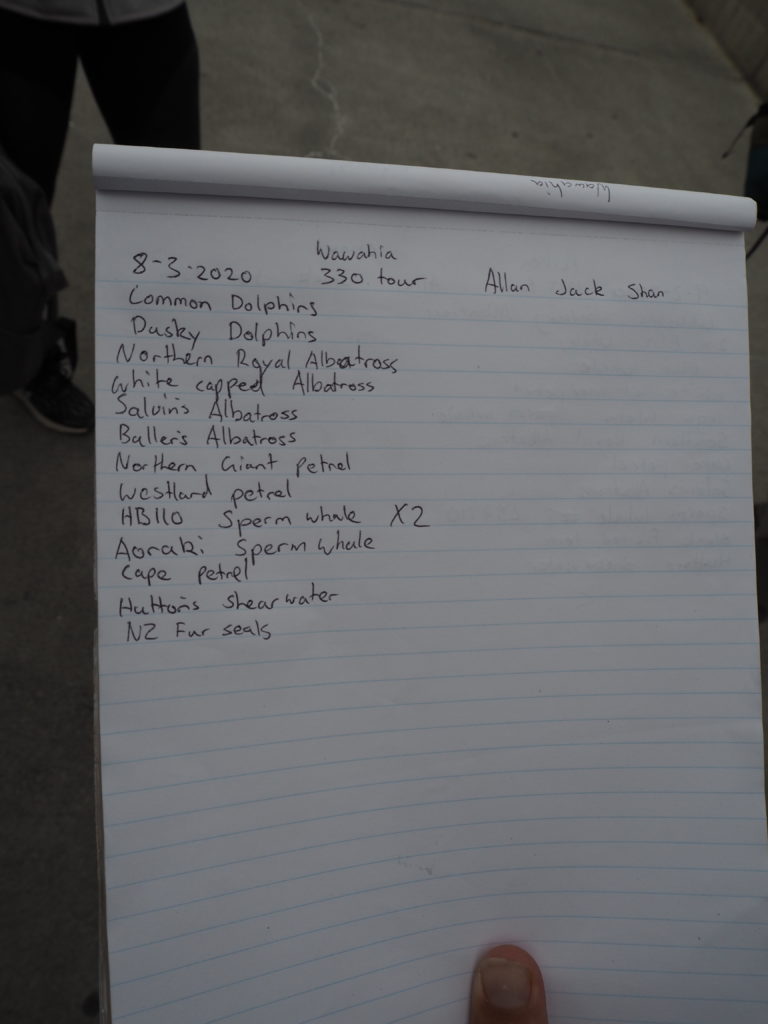 Wawahia
Wawahia
8-3-2020 330 tour Allan Jack Shan
Common Dolphins
Dusky Dolphins
Northern Royal Albatross
White capped Albatross
Salvin's Albatross
Buller's Albatross
Northern Giant petrel
Westland petrel
HB110 Sperm whale X2
Aoraki Sperm whale
Cape petrel
Hutton's Shearwater
NZ Fur seals